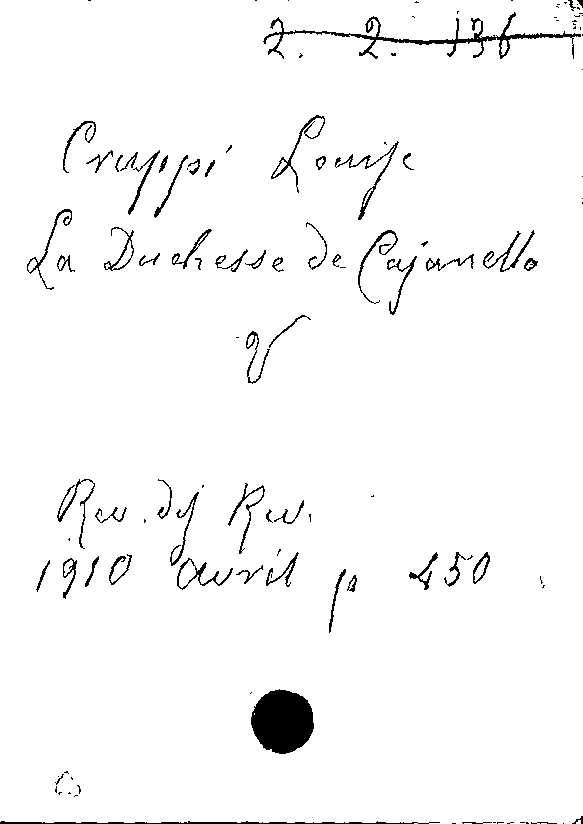 2. 2. 136
Cruppi Louise
La Duchesse de Cajanello
V
Rev. des Rev.
1910 avril p 450